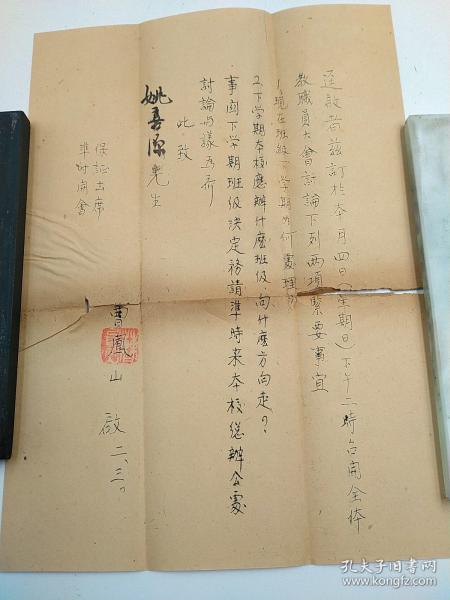 逕啟者茲訂於本月四日(星期日)下午二時召開全体
教職員大會討論下列兩項緊要事宜
1.現在班級下學期如何處理?
2.下学期本校應辦什麽班级向什麽方向走?
事関下学期班级決定務請準時来本校總辦公處
討論為荷
此致
姚喜源先生
保証出席
準時開會
鳳山 啟 二、三。
孔夫子旧书网
www.kongfz.com